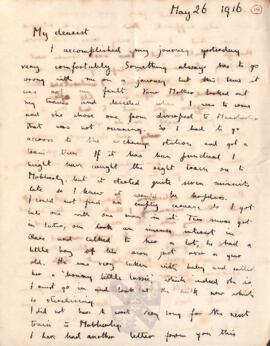 May 26 1916
My dearest
I accomplished my journey yesterday
very comfortably. Something always has to go
wrong with me on a journey but this time it
was fault. Your Mother looked out
my trains and decided when I was to come
and she chose one from Liverpool to Manchester
that was not running. So I had to go
across to the exchange station and get a
train then. If it has been punctual I
might have caught the right train on to
Mobberley, but it started quite seven minutes
late so I knew be hopeless.
I could not find an empty carriage so I got
into one with one man in it. Two nurses got
in later, one took an immense interest in
Oliver and talked to him a lot, he had a
little boy of his own just over a year
old. He was very taken with baby and called
her a "bonny little lassie" which indeed she is
I must go in and look at the milk now which
is sterilising.
I did not have to wait very long for the next
train to Mobberley.
I have had another letter from you this